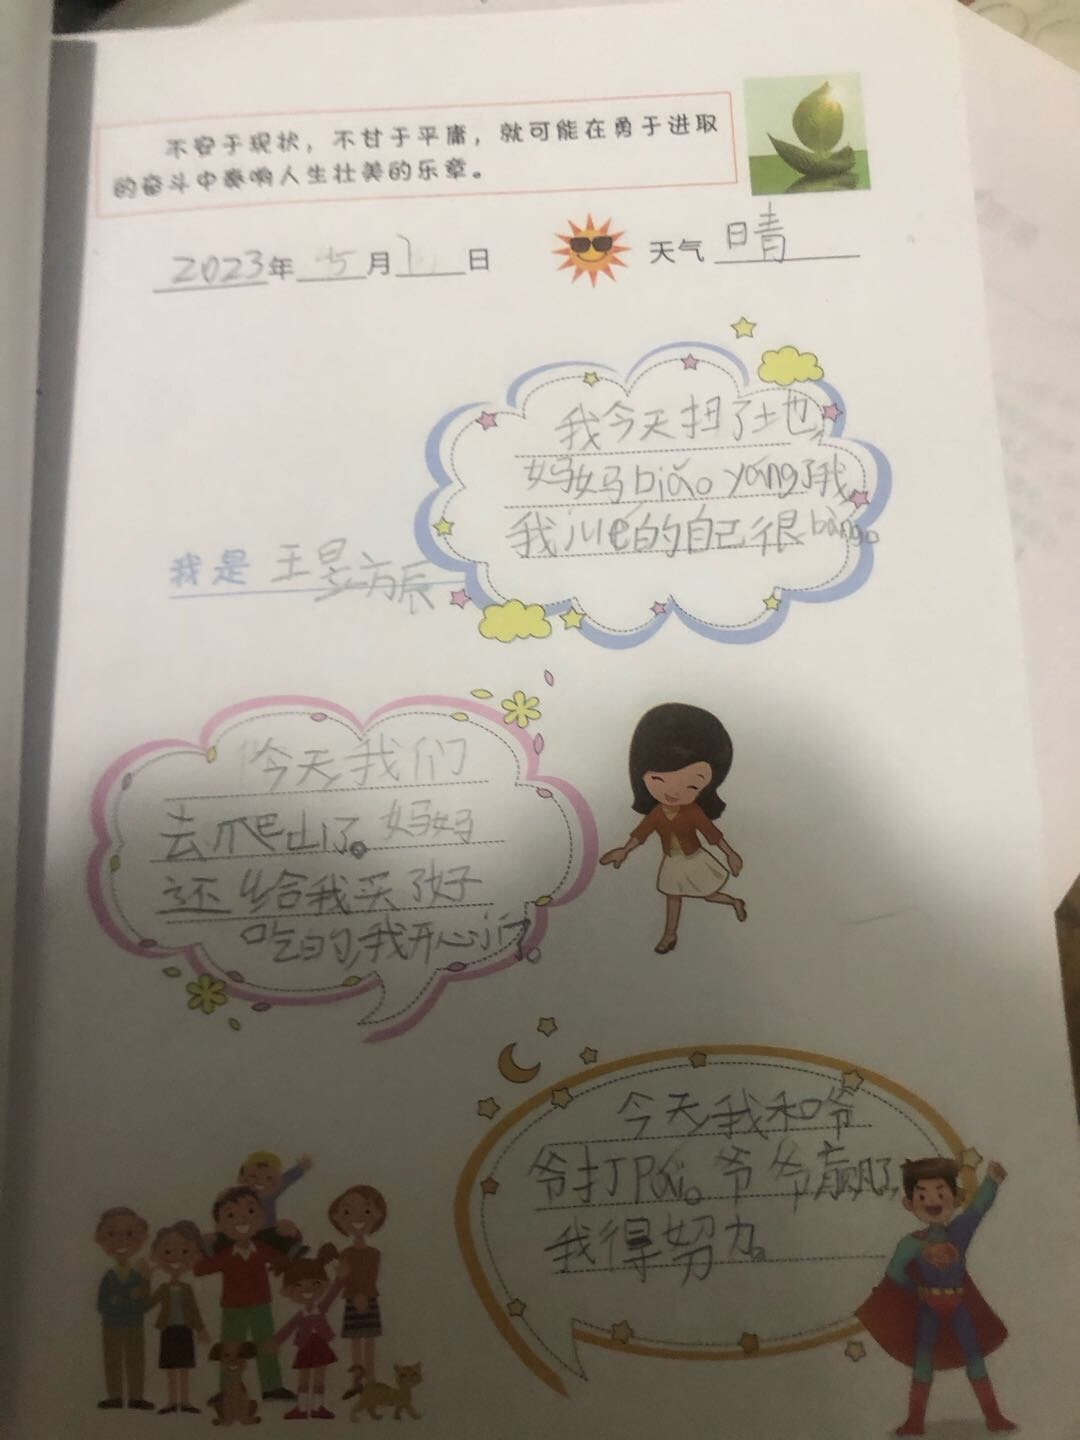 不安于现状，不甘于平庸，就可能在勇于进取
的奋斗中奏响人生壮美的乐章。
2023年 5月 日
天气 晴
我今天扫了土也，
妈妈biǎo yáng了我，
我 的自己很bàng。
我是 王昱方辰
今天我们
去爬山了。妈妈
还给我买了好
吃的，我开心 了。
今天我和爷
爷打Pái。爷爷赢了，
我得努力。